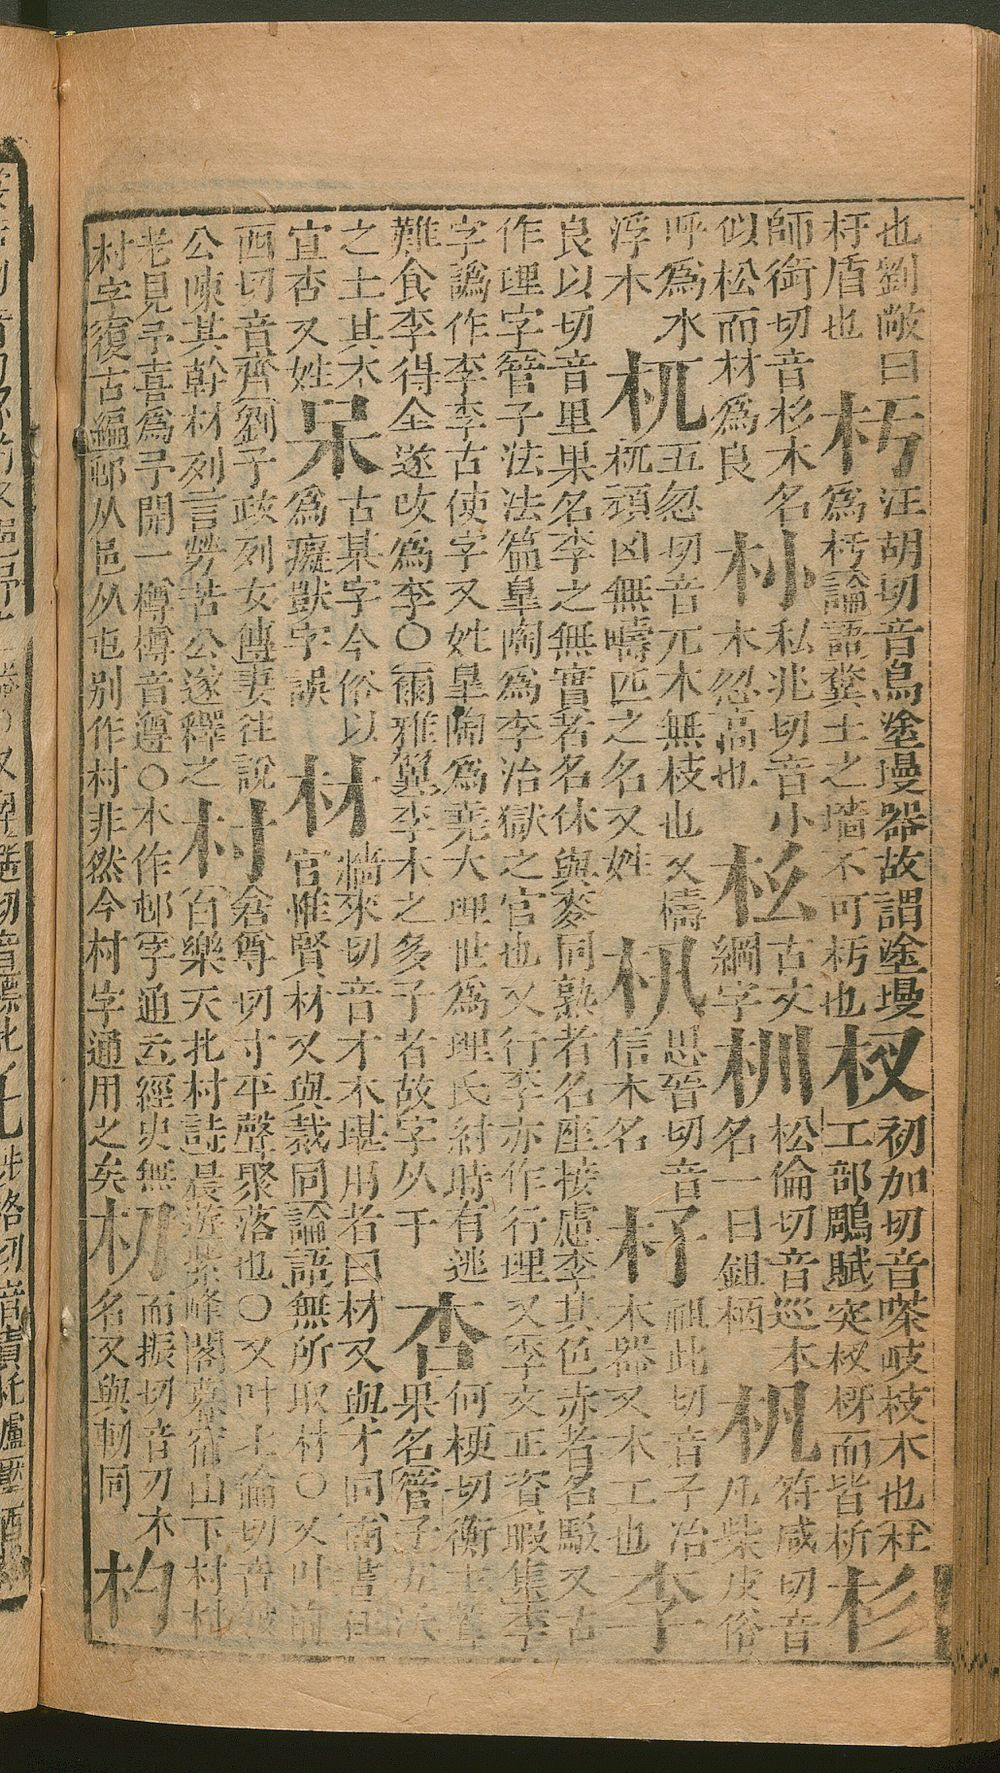 也劉敞曰杅盾也杇汪胡切音烏塗墁器故謂塗墁為杇論語糞土之墻不可杇也杈初加切音嗏岐枝木也杜工部鵰賦突杈枒而皆折杉
師銜切音杉木名似松而材為良私兆切音小木忽高也古文綱字杊松倫切音巡木名一曰鉏柄杋符咸切音凡柴皮俗
呼為水浮木杌五忽切音兀木無枝也又檮杌頑凶無疇匹之名又姓思晉切音信木名杍祖此切音子冶木器又木工也李
良以切音里果名李之無實者名休與麥同熟者名座接慮李其色赤者名駁又古作理字管子法法篇皐陶為李治獄之官也又行李亦作行理又李文正資暇集李
字譌作李李古使字又姓皐陶為堯大理世為理氏紂時有逃難食李得全遂改為李○爾雅翼李木之多子者故字从子杏何梗切衡上聲果名管子五沃
之土其木宜杏又姓呆古某字今俗以為癡獃字誤材牆來切音才木堪用者曰材又與才同尚書任官惟賢材又與裁同論語無所取材○又叶前
西切音齊劉子政列女傳妻往說公陳其幹材列言勞苦公遂釋之村倉尊切寸平聲聚落也○又叶七倫切音皴白樂天北村詩晨遊紫峰閣暮宿山下村村
老見予喜為予開一樽樽音遵○本作邨字通云經史無村字復古編邨从邑从屯別作村非然今村字通用之矣杒而振切音刃木名又與軔同杓